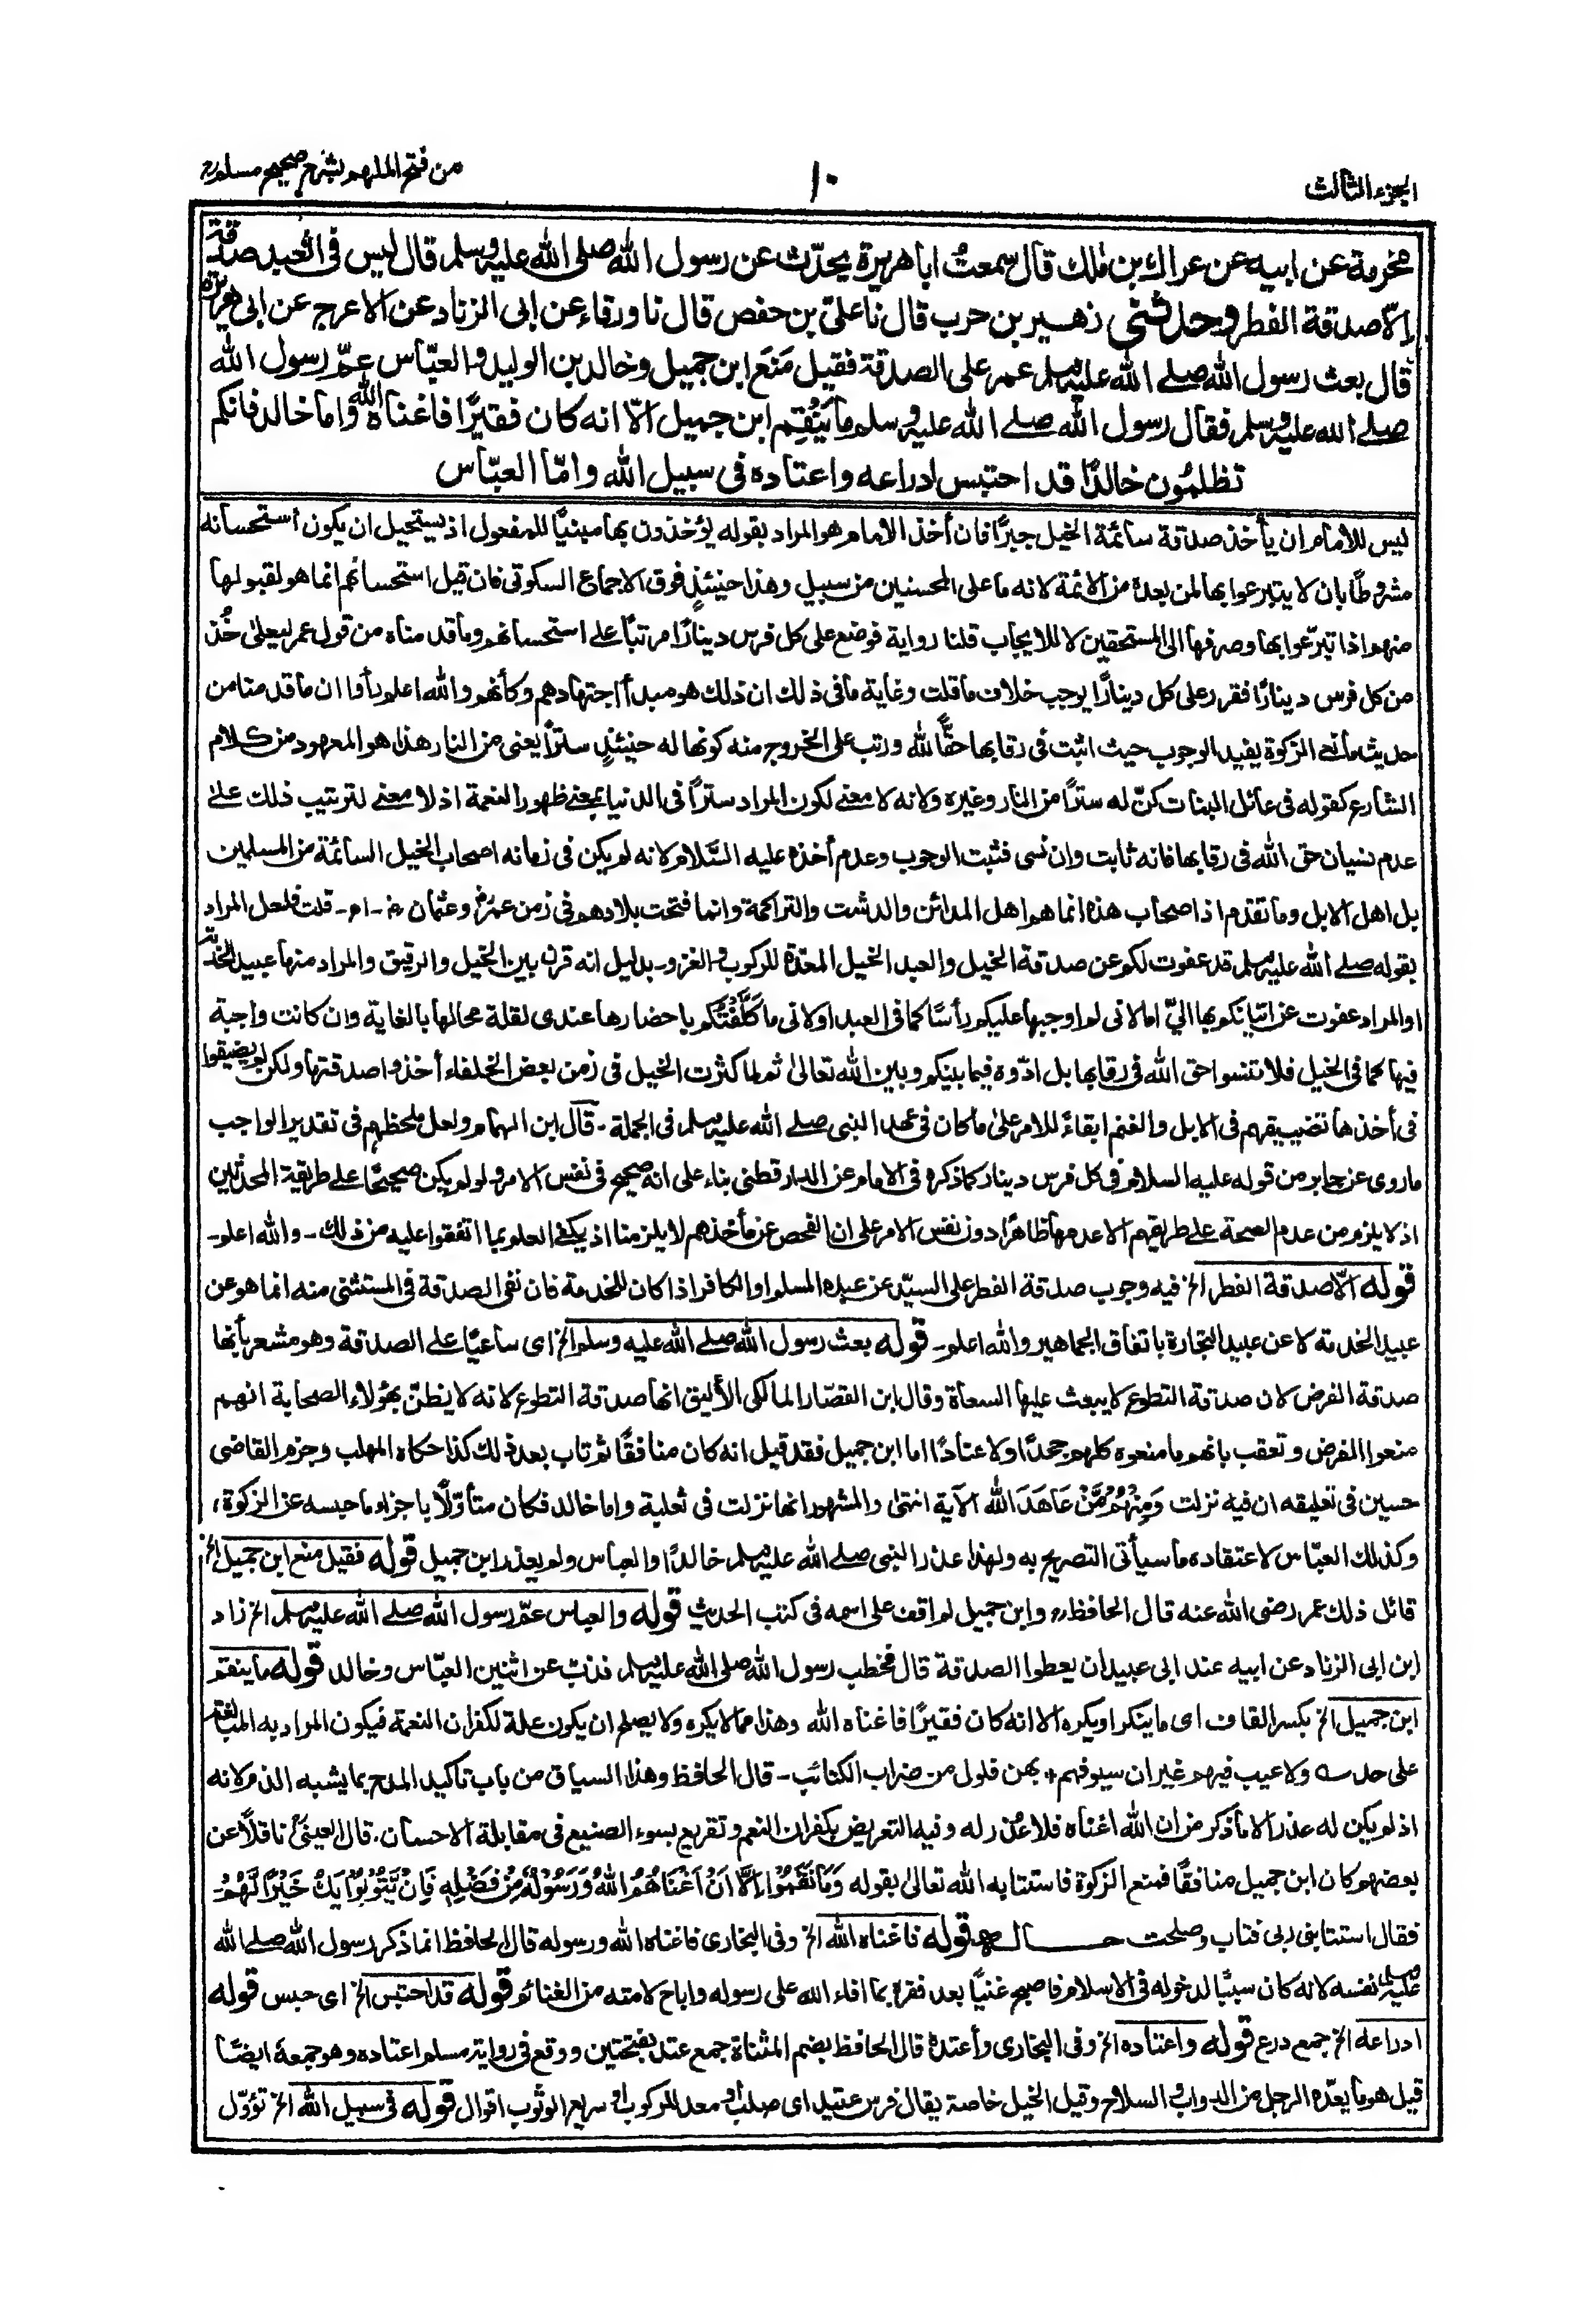 الجزء الثالث
١٠
من فتح الملهم بشرح صحيح مسلم
مخرمة عن ابيه عن عراك بن مٰلك قال سمعتُ ابا هريرة يحدّث عن رسول الله صلى الله عليه وسلم قال ليس فى العبد صدقة
إلّا صدقة الفطر وحدثنى زهير بن حرب قال نا علىّ بن حفص قال نا ورقاء عن ابى الزناد عن الاعرج عن ابى هريرة
قال بعث رسول الله صلے الله عليه وسلم عمر على الصدقة فقيل مَنَعَ ابن جميل وخالد بن الوليد والعبّاس عمّ رسول الله
صلے الله عليه وسلم فقال رسول الله صلے الله عليه وسلم ما يَنْقِم ابن جميل الّا انه كان فقيرًا فاغناه الله واما خالد فانكم
تظلمُون خالدًا قد احتبس ادراعه واعتاده فى سبيل الله وامّا العبّاس
ليس للامام ان يأخذ صدقة سائمة الخيل جبرًا فان أخذ الامام هو المراد بقوله يؤخذون بها مبنيًّا للمفعول اذ يستحيل ان يكون استحسانه
مشروطًا بان لا يتبرعوا بها لمن بعدهٗ من الائمة لانه ما على المحسنين من سبيل وهذا حينئذٍ فوق الاجماع السكوتى فان قيل استحسانهم انما هو لقبولها
منهم اذا تبرّعوا بها وصرفها الى المستحقين لا للايجاب قلنا رواية فوضع على كل فرس دينارًا مرتبًا على استحسانهم وما قدمناه من قول عمر ليعلىٰ خُذ
من كل فرس دينارًا فقرر على كل دينارًا يوجب خلاف ما قلت وغاية ما فى ذلك ان ذلك هو مبدأ اجتهادهم وكأنهم والله اعلم رأوا ان ما قدمنا من
حديث مانعى الزكوة يفيد الوجوب حيث اثبت فى رقابها حقًّا لله ورتب على الخروج منه كونها له حينئذٍ سترًا يعنى من النار هذا هو المعهود من كلام
الشارع كقوله فى عائل البنات كنّ له سترًا من النار وغيره ولانه لا معنى لكون المراد سترًا فى الدنيا بمعنى ظهور النعمة اذ لا معنى لترتيب ذلك على
عدم نسيان حق الله فى رقابها فانه ثابت وان نسى فثبت الوجوب وعدم أخذه عليه السَّلام لانه لم يكن فى زمانه اصحاب الخيل السائمة من المسلمين
بل اهل الابل وما تقدم اذ اصحاب هذه انما هم اهل المدائن والدشت والتراكمة وانما فتحت بلادهم فى زمن عمرؓ وعثمانؓ - اھ - قلت فلعل المراد
بقوله صلے الله عليه وسلم قد عفوت لكم عن صدقة الخيل والعبد الخيل المعدّة للركوب والغزو - بدليل انه قرن بين الخيل والرقيق والمراد منها عبيد الخدمة
او المراد عفوت عن اتيانكم بها الىّ اما لانى لم اوجبها عليكم رأسًا كما فى العبد او لانى ما كَلَّفْتُكُم باحضارها عندى لقلة محالها بالغاية وان كانت واجبة
فيها كما فى الخيل فلا تنسوا حق الله فى رقابها بل ادّوه فيما بينكم وبين الله تعالىٰ ثم لما كثرت الخيل فى زمن بعض الخلفاء أخذوا صدقتها ولكن لم يضيقوا
فى أخذها تضييقهم فى الابل والغنم ابقاءً للامر علىٰ ما كان فى عهد النبى صلے الله عليه وسلم فى الجملة - قال ابن الهمام ولعل ملحظهم فى تقدير الواجب
ما روى عن جابر من قوله عليه السلام فى كل فرس دينار كما ذكره فى الامام عن الدارقطنى بناء على انه صحيح فى نفس الامر ولو لم يكن صحيحًا على طريقة المحدثين
اذ لا يلزم من عدم الصحة على طريقهم الا عدمها ظاهرًا دون نفس الامر على ان الفحص عن مأخذهم لا يلزمنا اذ يكفى العلم بما اتفقوا عليه من ذلك - والله اعلم -
قوله الّا صدقة الفطر الخ فيه وجوب صدقة الفطر على السيّد عن عبده المسلم او الكافر اذا كان للخدمة فان نفى الصدقة فى المستثنى منه انما هو عن
عبيد الخدمة لا عن عبيد التجارة باتفاق الجماهير والله اعلم - قوله بعث رسول الله صلے الله عليه وسلم الخ اى ساعيًا على الصدقة وهو مشعر بأنها
صدقة الفرض لان صدقة التطوع لا يبعث عليها السعاة وقال ابن القصّار المالكى الأليق انها صدقة التطوع لانه لا يظنّ بهٰؤلاء الصحابة انهم
منعوا الفرض وتعقب بانهم ما منعوه كلهم جحدًا ولا عنادًا اما ابن جميل فقد قيل انه كان منافقًا ثم تاب بعد ذلك كذا حكاه المهلب وجزم القاضى
حسين فى تعليقه ان فيه نزلت وَمِنْهُمْ مَّنْ عَاهَدَ الله الآية انتهى والمشهور انها نزلت فى ثعلبة واما خالد فكان متأوّلًا باجزاء ما حبسه عن الزكوة،
وكذلك العبّاس لاعتقاده ما سيأتى التصريح به ولهذا عذر النبى صلے الله عليه وسلم خالدًا والعباس ولم يعذر ابن جميل قوله فقيل منع ابن جميل الخ
قائل ذلك عمر رضى الله عنه قال الحافظؒ وابن جميل لم اقف على اسمه فى كتب الحديث قوله والعباس عمّ رسول الله صلے الله عليه وسلم الخ زاد
ابن ابى الزناد عن ابيه عند ابى عبيد ان يعطوا الصدقة قال فخطب رسول الله صلى الله عليه وسلم فذبّ عن اثنين العبّاس وخالد قوله ما ينقم
ابن جميل الخ بكسر القاف اى ما ينكر او يكره الا انه كان فقيرًا فاغناه الله وهذا مما لا يكره ولا يصلح ان يكون علة لكفران النعمة فيكون المراد به المبالغة
على حد ـہ ولا عيب فيهم غير ان سيوفهم ٭ بهن فلول من ضراب الكتائب - قال الحافظ وهذا السياق من باب تاكيد المدح بما يشبه الذم لانه
اذ لم يكن له عذر الا ما ذكر من ان الله اغناه فلا عُذر له وفيه التعريض بكفران النعم وتقريع بسوء الصنيع فى مقابلة الاحسان. قال العينىؒ ناقلًا عن
بعضهم كان ابن جميل منافقًا فمنع الزكوة فاستتابه الله تعالىٰ بقوله وَمَا نَقَمُوْا اِلَّا اَنْ اَغْنَاهُمُ اللهُ وَرَسُوْلُهٗ مِنْ فَضْلِهٖ فَاِنْ يَّتُوْبُوْا يَكُ خَيْرًا لَّهُمْ
فقال استتابنى ربى فتاب وصلحت حاله قوله فاغناه الله الخ وفى البخارى فاغناه الله ورسوله قال الحافظ انما ذكر رسول الله صلے الله
عليه وسلم نفسه لانه كان سببًا لدخوله فى الاسلام فاصبح غنيًّا بعد فقره بما افاء الله على رسوله واباح لامته من الغنائم قوله قد احتبس الخ اى حبس قوله
ادراعه الخ جمع درع قوله واعتاده الخ وفى البخارى وأعتده قال الحافظ بضم المثناة جمع عتد بفتحتين ووقع فى رواية مسلم اعتاده وهو جمعه ايضًا
قيل هو ما يعدّه الرجل من الدواب والسلاح وقيل الخيل خاصة يقال فرس عتيد اى صلب او معد للركوب او سريع الوثوب اقوال قوله فى سبيل الله الخ تؤوّل